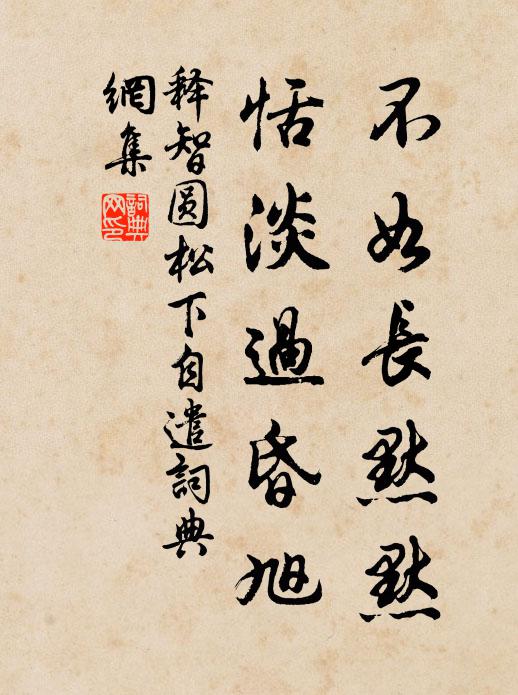 不如長默默
恬淡過昏旭
释智圆松下自遣詞典
網集
詞典
网印